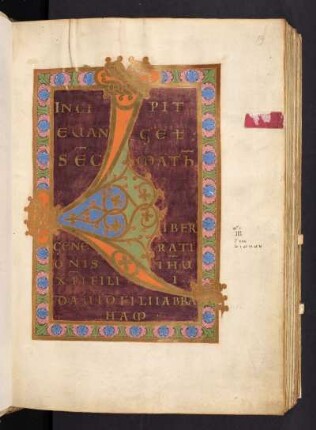 INCI PIT
EUAN GEĻ
SEC MATH
LIBER
GENE RATI
ONIS IHU
XPI FILI I
DAUID FILII ABRA
HAM